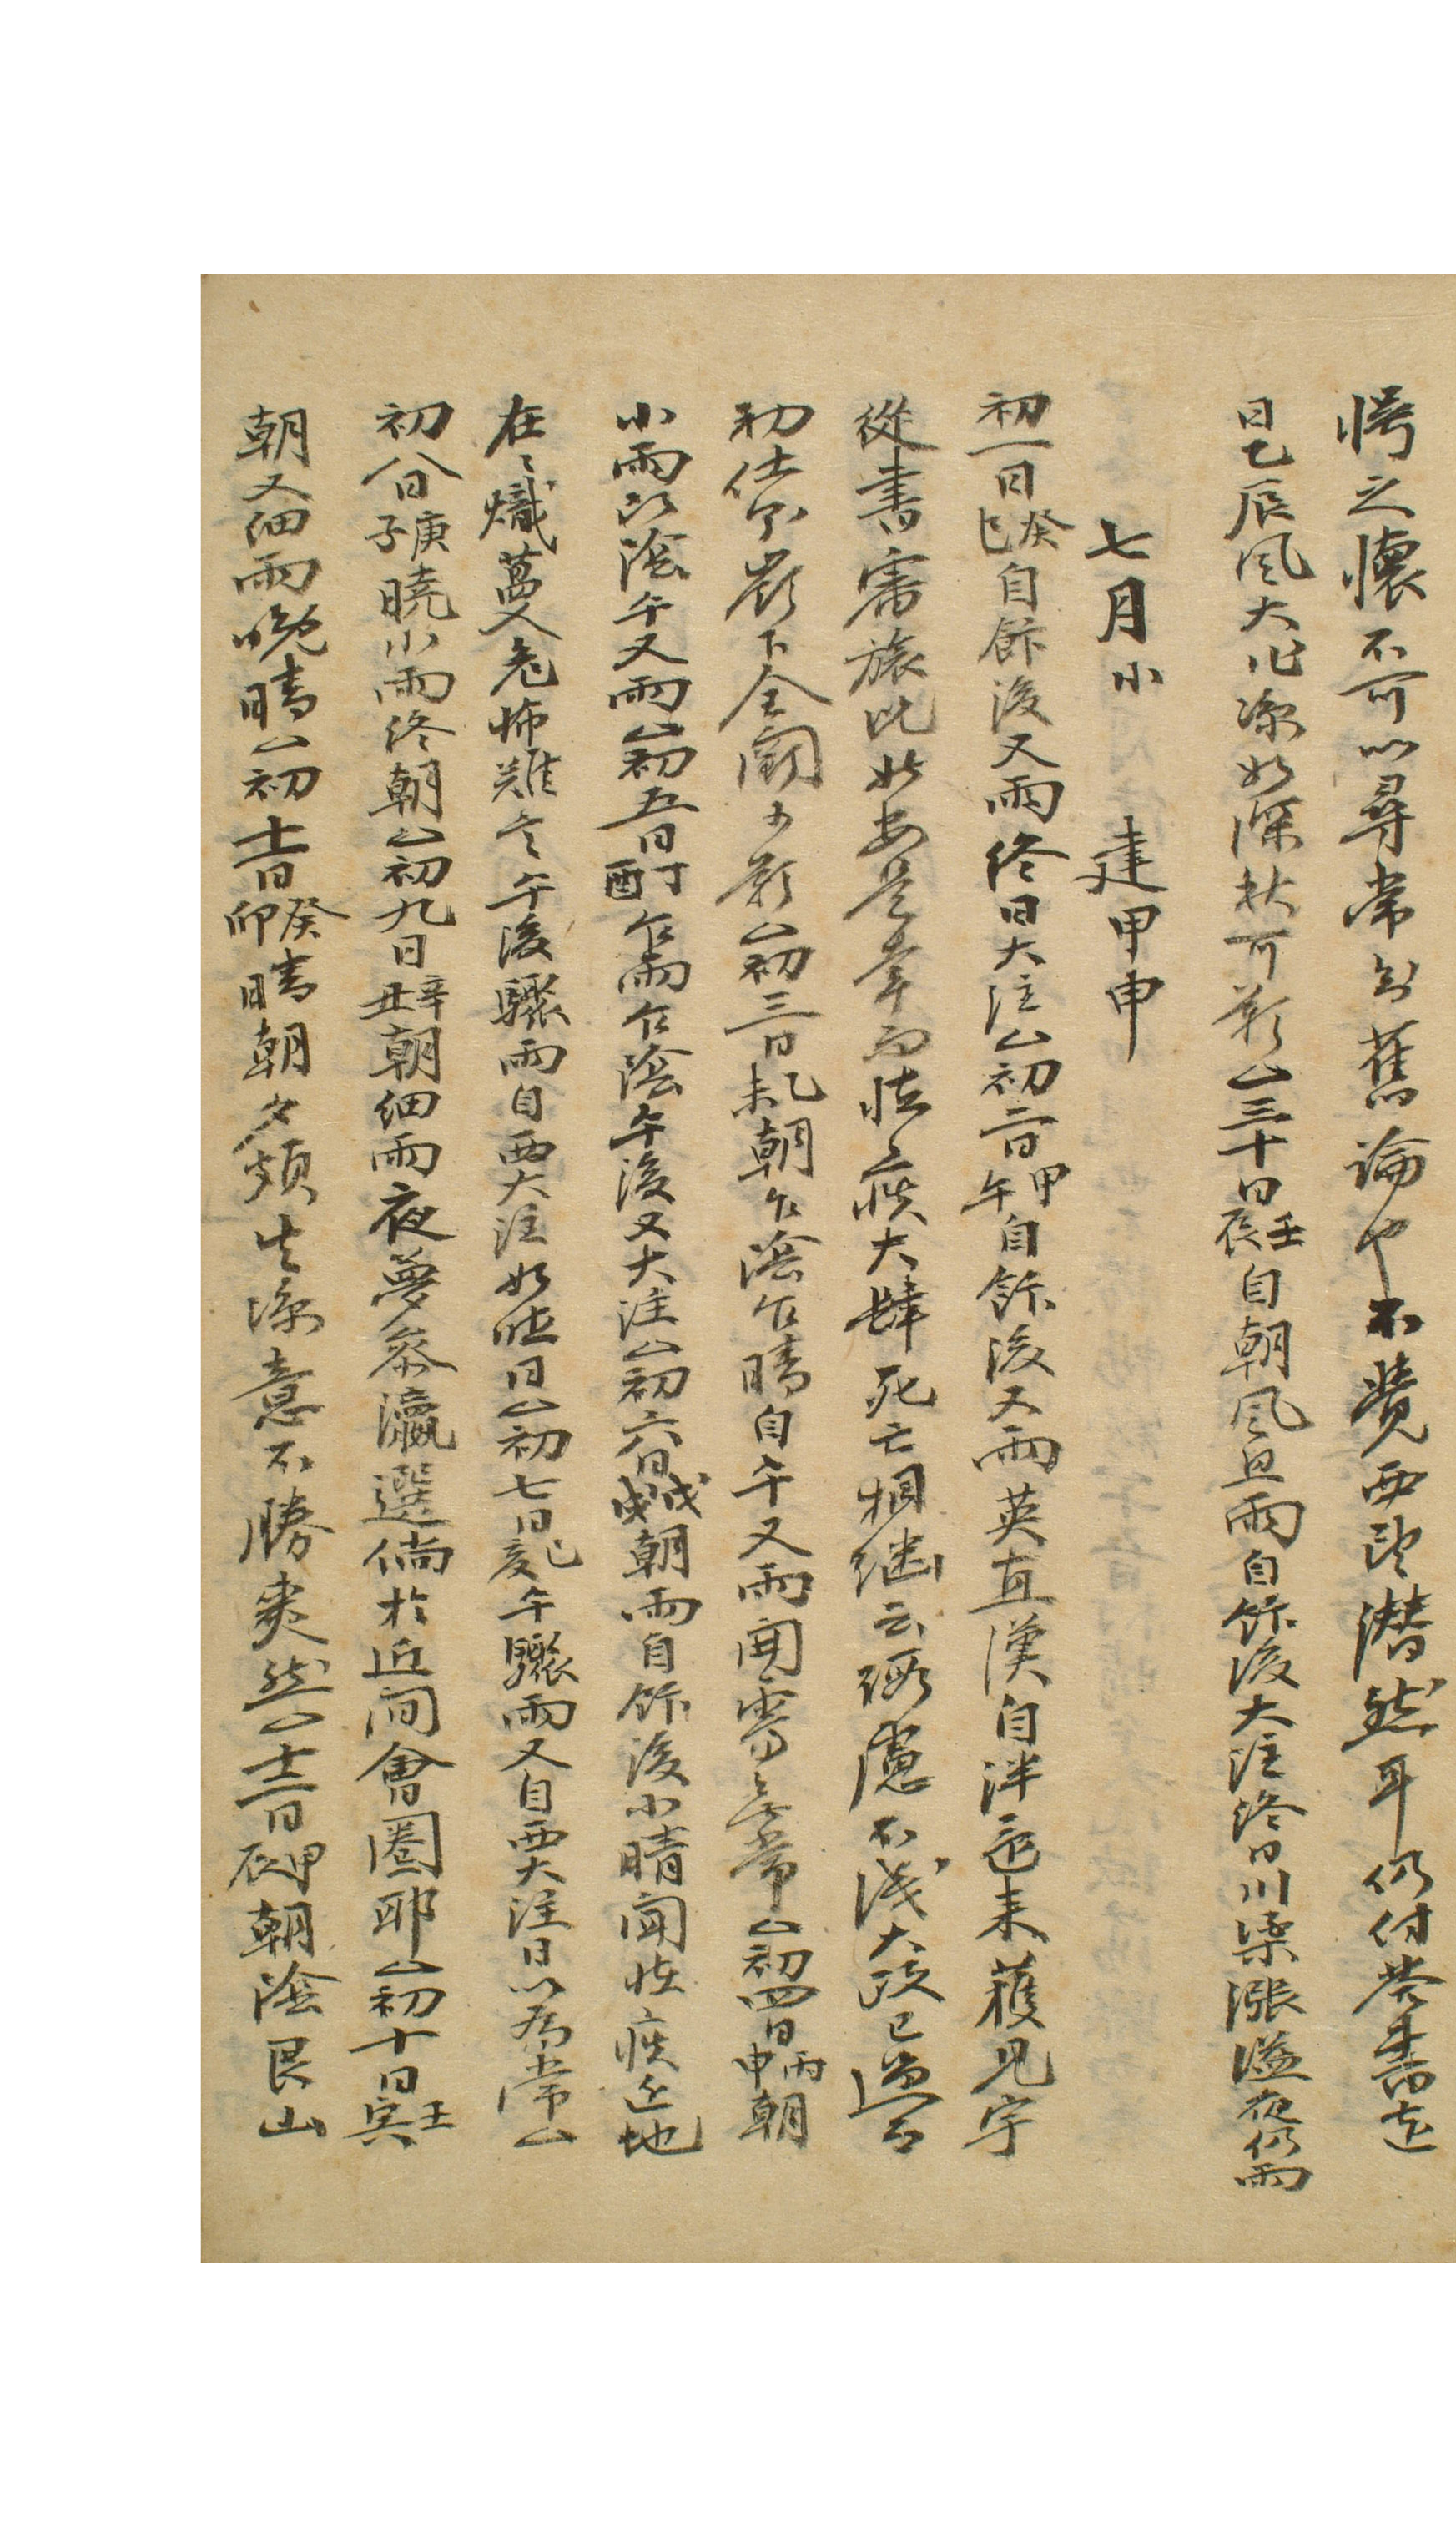 愕之懷不可以尋常知舊論也不覺西望潛然耳仍付答書送
日乙辰風大作凉如深秋可歎△三十日壬辰自朝風且雨自飯後大注終日川渠漲溢夜仍雨
七月小 建甲申
初一日癸巳自飯後又雨終日大注△初二日甲午自飯後又雨英直漢自泮邑來獲見宇
從書審旅況此安是幸而怪疾大肆死亡相繼云遐慮不淺大政已過台
初仕不成下全闕可歎△初三日乙未朝乍陰乍晴自午又雨開霽無常△初四日丙申朝
小雨晚陰午又雨△初五日丁酉乍雨乍陰午後又大注△初六日戊戌朝雨自飯後小晴聞怪疾近地
在々熾蔓危怖難言午後驟雨自西大注如昨日△初七日己亥午驟雨又自西大注日以爲常△
初八日庚子曉小雨終朝△初九日辛丑朝細雨夜夢參瀛選倘於近間會圈耶△初十日壬寅
朝又細雨晩晴△初十一日癸卯晴朝夕頗生凉意不勝爽然△十二日甲辰朝陰艮山